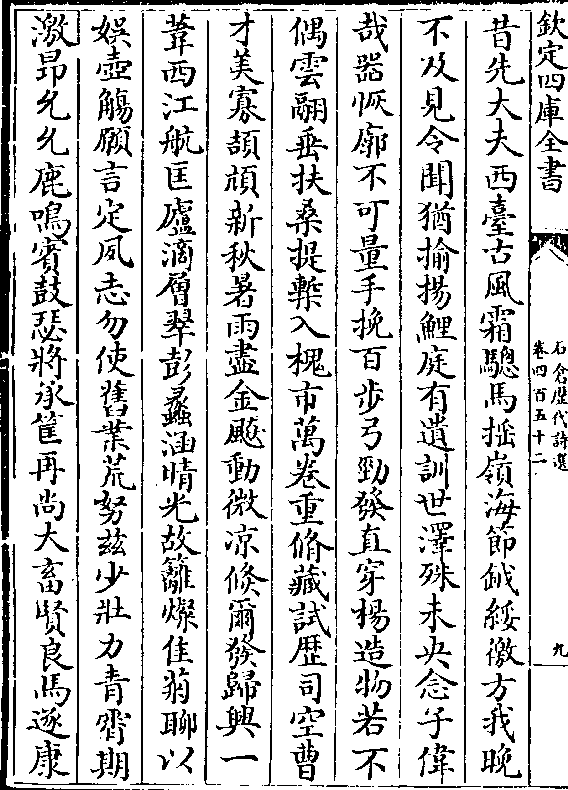 欽定四庫全書
石倉歷代詩選
卷四百五十二
九
昔先大夫西臺古風霜驄馬揺嶺海節鉞綏徼方我晚
不及見令聞猶揄揚鯉庭有遺訓世澤殊未央念子偉
哉器恢廓不可量手挽百步弓勁發直穿楊造物若不
偶雲翮垂扶桑提槧入槐市萬卷重脩藏試歴司空曹
才美寡頡頏新秋暑雨盡金飈動微凉倐爾發歸興一
葦西江航匡廬滴層翠彭蠡涵晴光故籬燦佳菊聊以
娯壺觴願言定夙志勿使舊業荒努兹少壯力青霄期
激昻允允鹿鳴賓鼓瑟將承筐再尚大畜賢良馬逐康